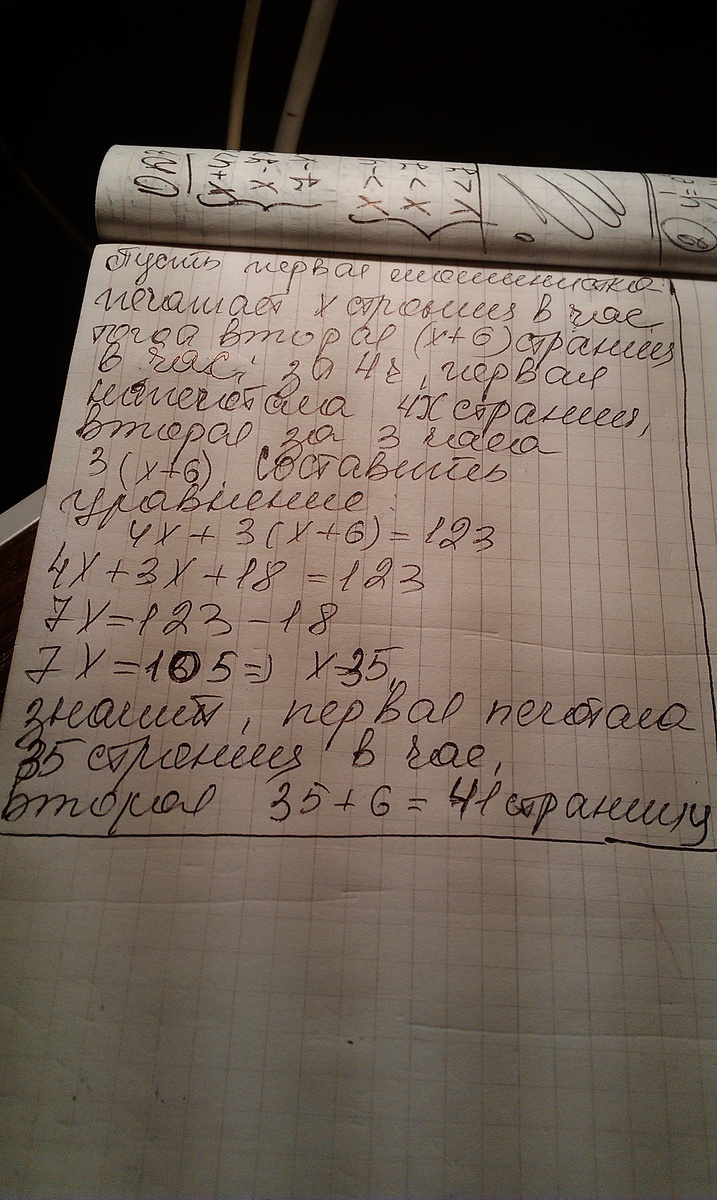 Пусть первая машинистка
печатает x страниц в час,
тогда вторая (x+6) страниц
в час; за 4ч, первая
напечатала 4x страниц,
вторая за 3 часа
3(x+6). Составить
уравнение:
4x + 3(x+6) = 123
4x+3x+18 = 123
7x=123-18
7x=105=) x=35,
значит, первая печатала
35 страниц в час,
вторая 35+6 = 41 страницу